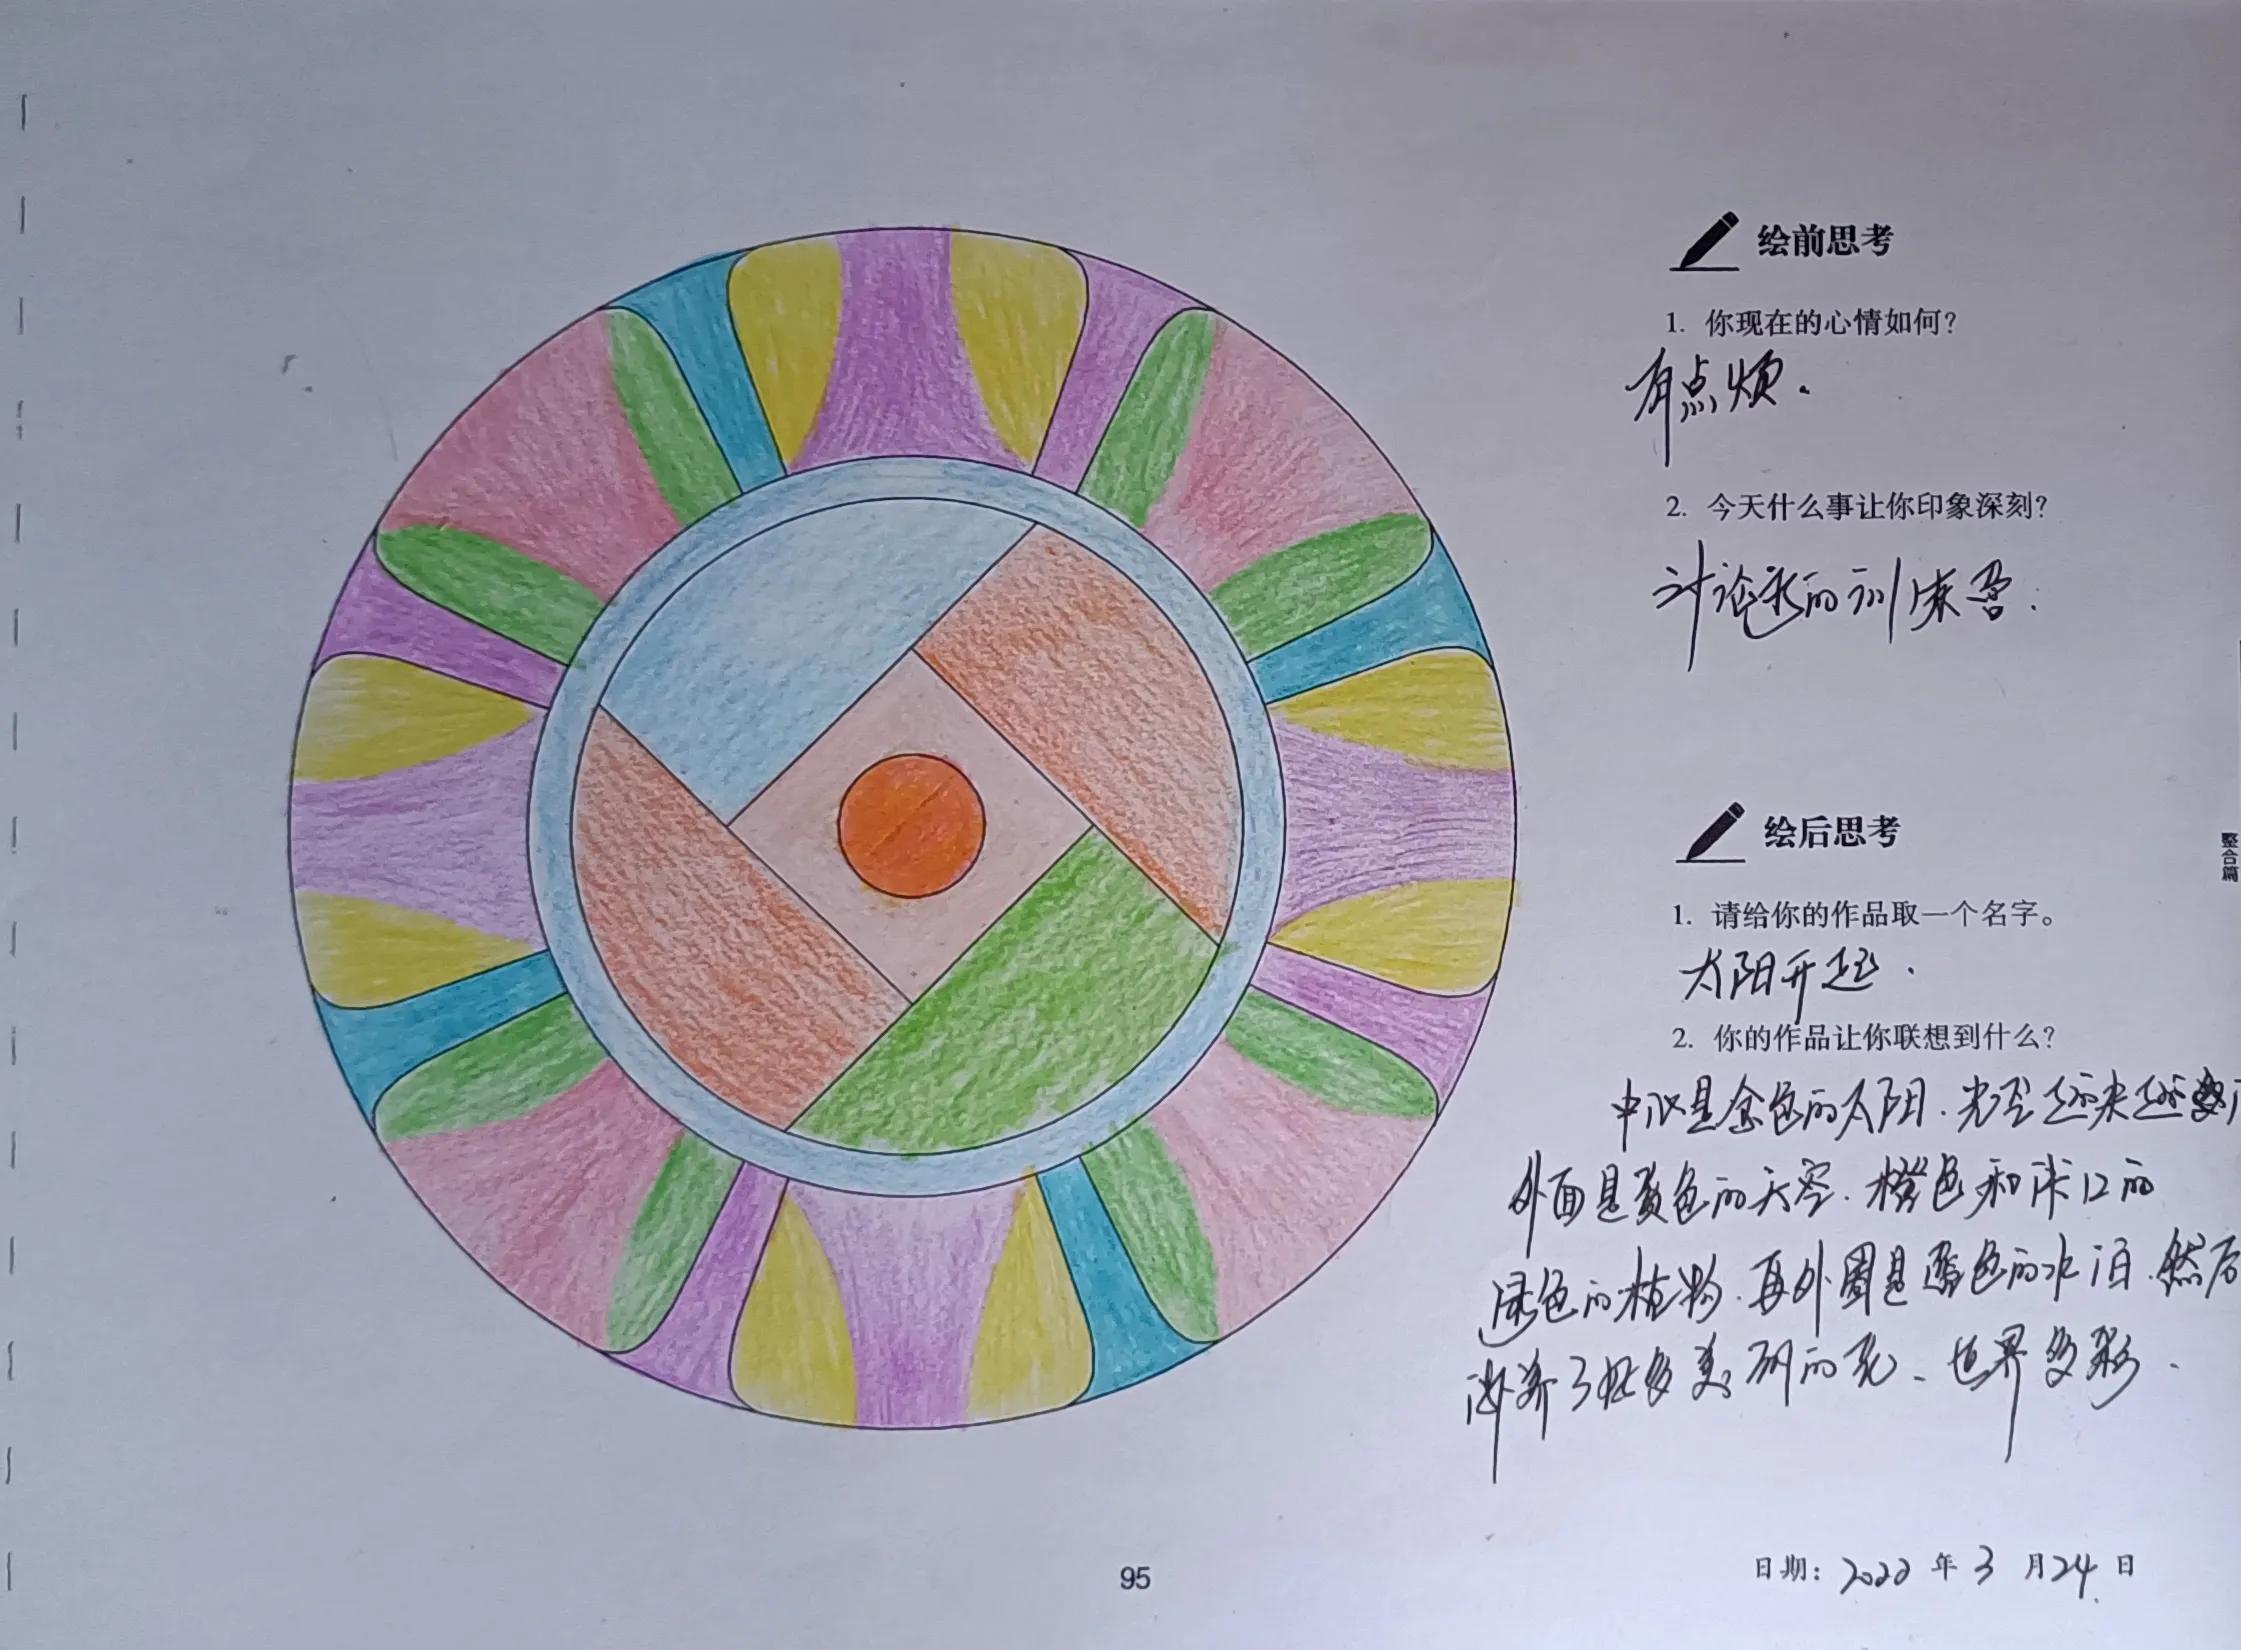 绘前思考
1. 你现在的心情如何？
有点烦.
2. 今天什么事让你印象深刻？
讨论我的训练营.
绘后思考
1. 请给你的作品取一个名字。
太阳升起.
2. 你的作品让你联想到什么？
中心是金色的太阳.
外面是蓝色的天空.橙色和
绿色的植物.再外圈是蓝色的水泊.然后
滋养了好多美丽的花、世界多彩.
整合篇
95
日期：2022年3月24日